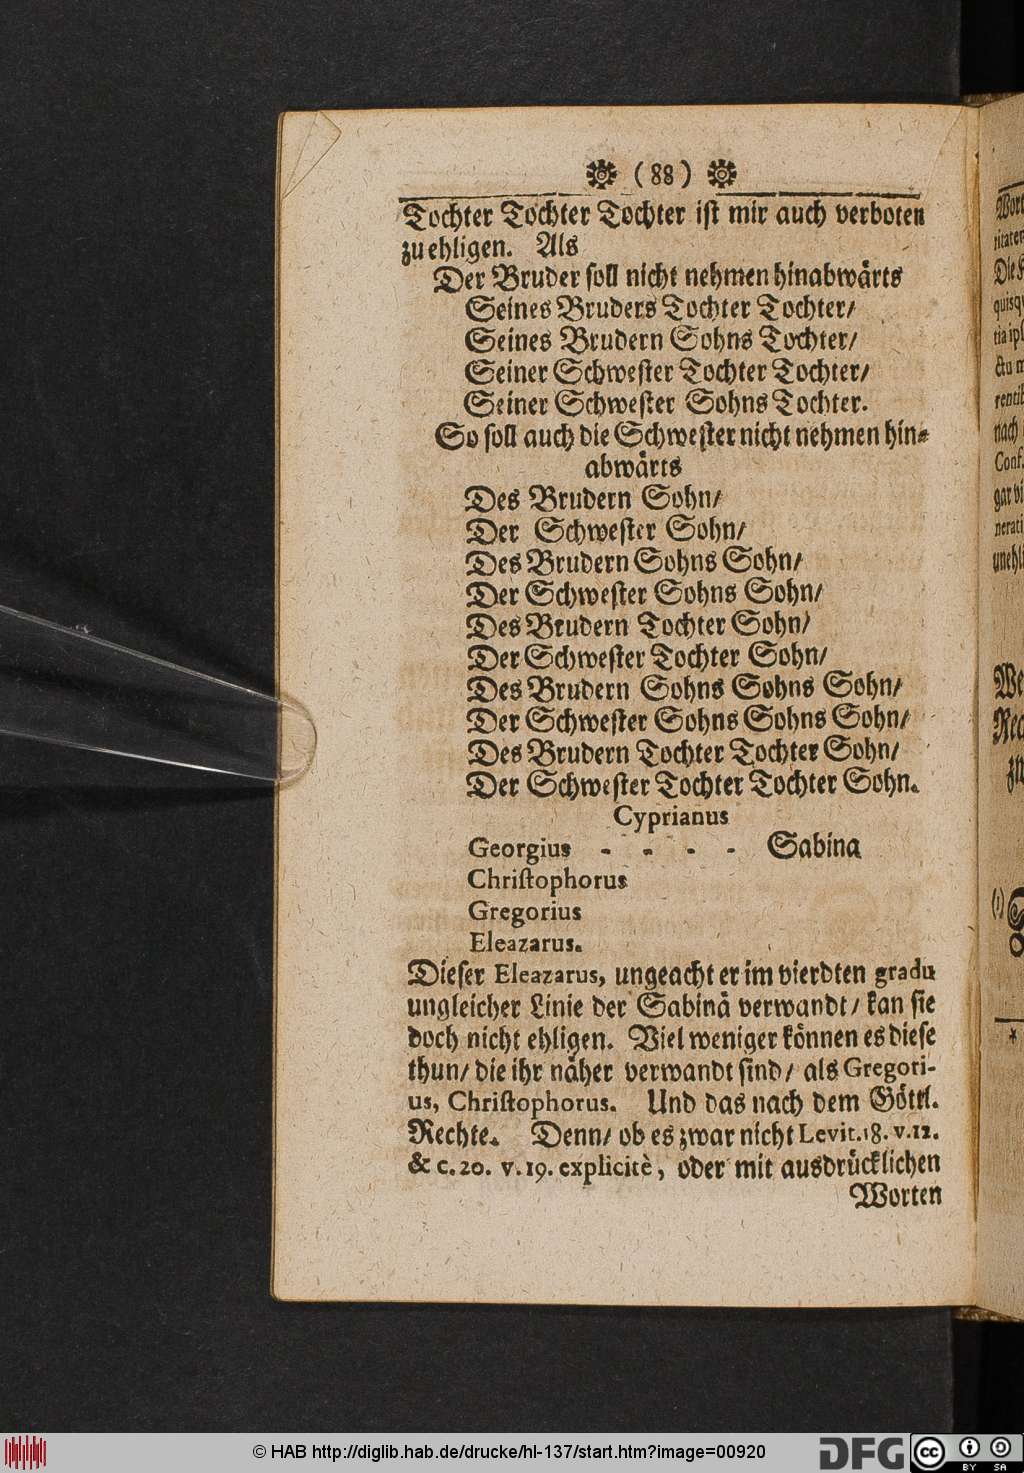 ❁ ( 88 ) ❁
Tochter Tochter Tochter iſt mir auch verboten
zu ehligen. Als
Der Bruder ſoll nicht nehmen hinabwärts
Seines Bruders Tochter Tochter/
Seines Brudern Sohns Tochter/
Seiner Schweſter Tochter Tochter/
Seiner Schweſter Sohns Tochter.
So ſoll auch die Schweſter nicht nehmen hin⸗
abwärts
Des Brudern Sohn/
Der Schweſter Sohn/
Des Brudern Sohns Sohn/
Der Schweſter Sohns Sohn/
Des Brudern Tochter Sohn/
Der Schweſter Tochter Sohn/
Des Brudern Sohns Sohns Sohn/
Der Schweſter Sohns Sohns Sohn/
Des Brudern Tochter Tochter Sohn/
Der Schweſter Tochter Tochter Sohn.
Cyprianus
Georgius - - - - Sabina
Chriſtophorus
Gregorius
Eleazarus.
Dieſer Eleazarus, ungeacht er im vierdten gradu
ungleicher Linie der Sabinä verwandt/ kan ſie
doch nicht ehligen. Viel weniger können es dieſe
thun/ die ihr näher verwandt ſind/ als Gregori-
us, Chriſtophorus. Und das nach dem Göttl.
Rechte. Denn/ ob es zwar nicht Levit. 18. v. 12.
& c. 20. v. 19. explicitè, oder mit ausdrücklichen
Worten
© HAB http://diglib.hab.de/drucke/hl-137/start.htm?image=00920
DFG
cc BY SA